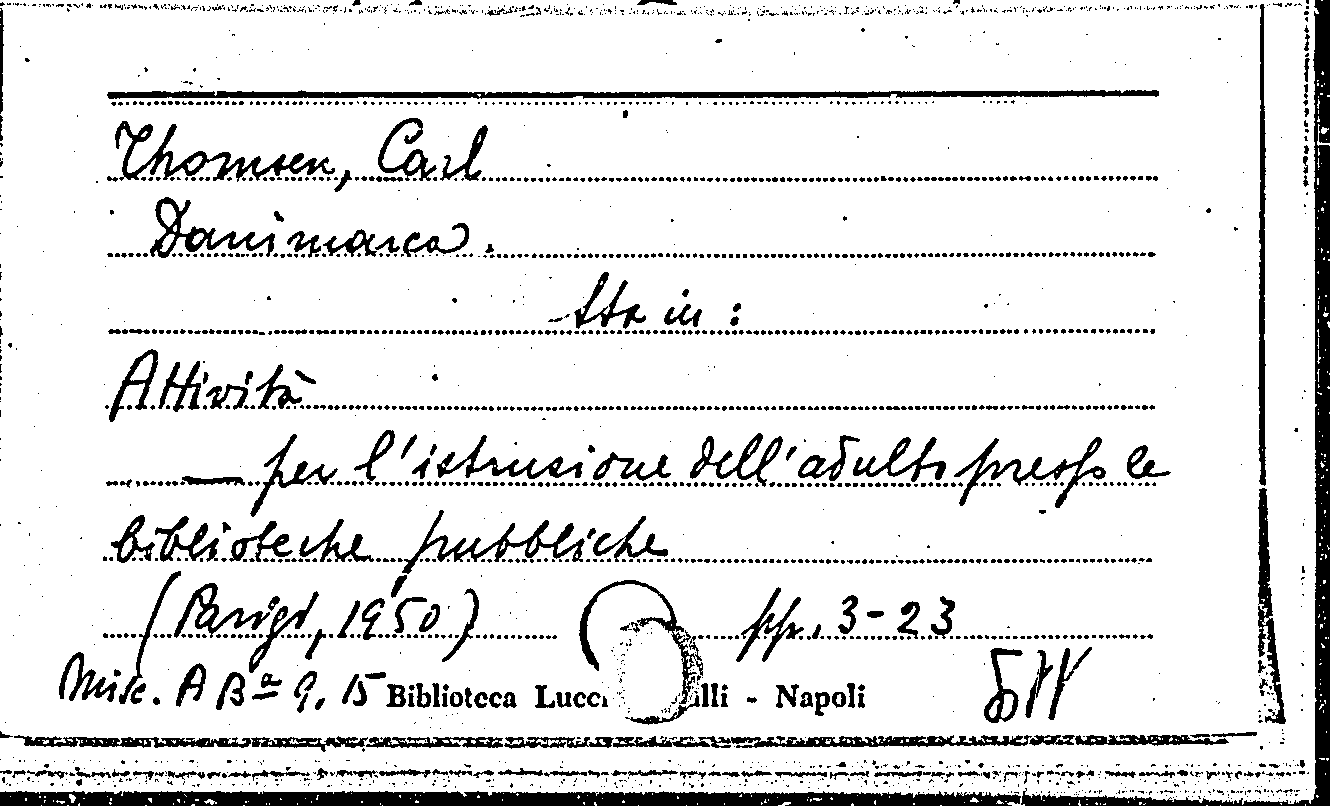 Thomsen, Carl
Danimarca.
Sta in:
Attività
— per l'istruzione dell'adulto presso le
biblioteche pubbliche
(Parigi, 1950) pp. 3-23
Misc. A Bª 9, 15 Biblioteca - Napoli